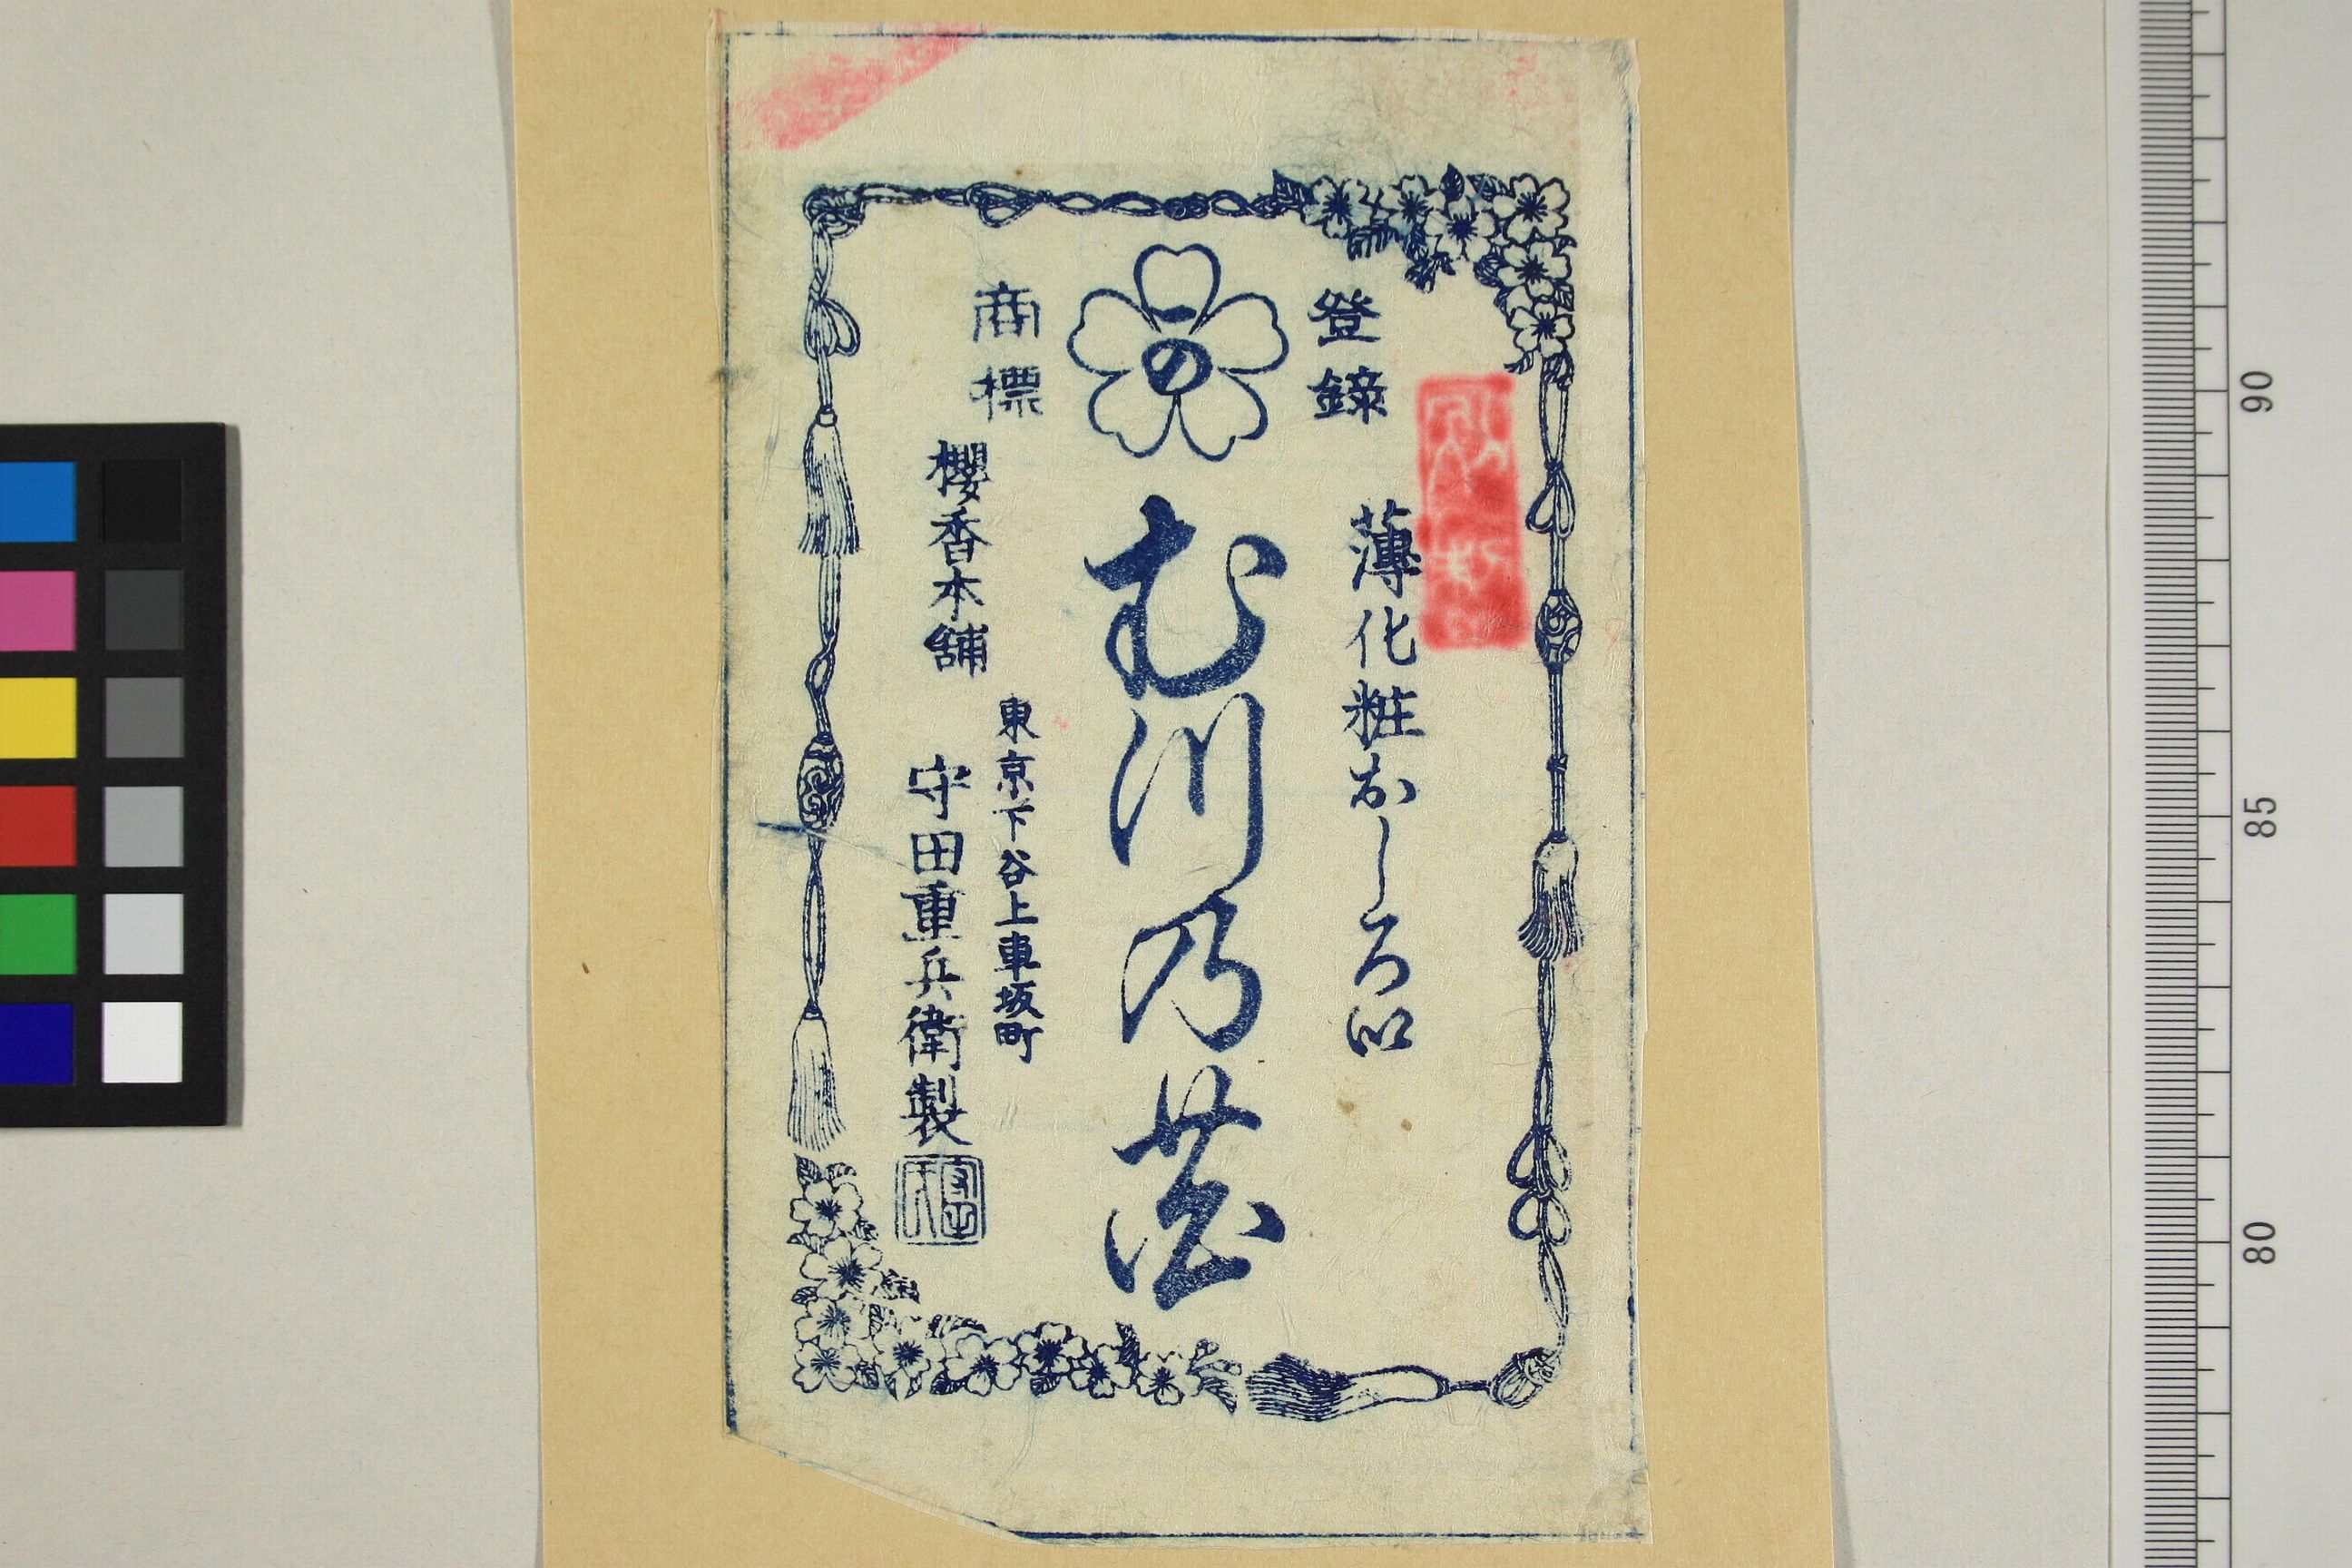 登録
商標
一の
薄化粧おしろい
むつの花
東京下谷上車坂町
櫻香本舗
守田重兵衛製
90
85
80